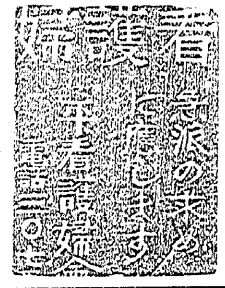 看護婦
急派の求め
に應じます
看護婦會
電話三〇